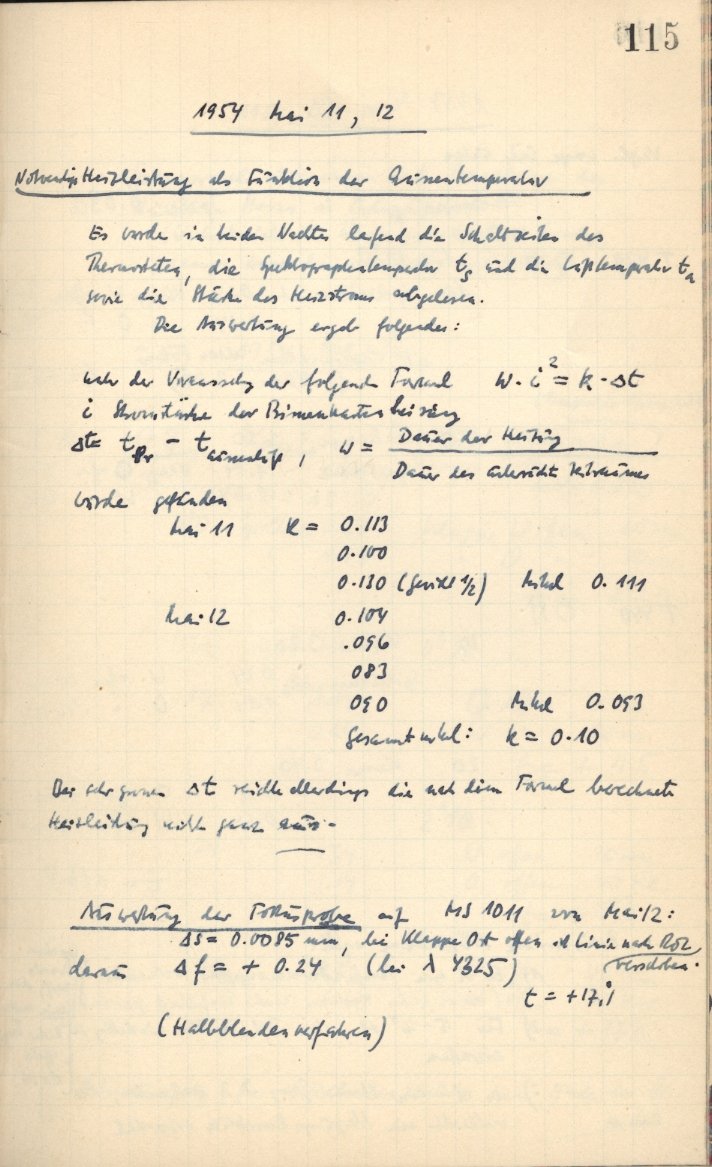 115
1954 Mai 11, 12
Notwendige Heizleistung als Funktion der Aussentemperatur
Es wurde in beiden Nächten laufend die Schaltzeiten des
Thermostaten, die Spektrographentemperatur ts und die Lufttemperatur ta
sowie die Stärke des Heizstroms abgelesen.
Die Auswertung ergab folgendes:
unter der Voraussetzg der folgenden Formel w · i² = k · Δt
i Stromstärke der Prismenkastenheizung
Δt = tPr − taussenluft, w = Dauer der Heizung
Dauer des
wurde gefunden
Mai 11 k = 0.113
0.100
0.130 (Gewicht 1/2) Mittel 0.111
Mai 12 0.104
.096
083
090 Mittel 0.093
Gesamtmittel: k = 0.10
Bei sehr grossen Δt reicht allerdings die nach dieser Formel berechnete
Heizleistung nicht ganz aus.
Auswertung der Fokusprobe auf MS 1011 von Mai 12:
Δs = 0.0085 mm, bei Klappe Ost offen ist Linie nach Rot
verschoben.
daraus Δf = + 0.24 (bei λ 4325)
t = +17.1
(Halbblendenverfahren)